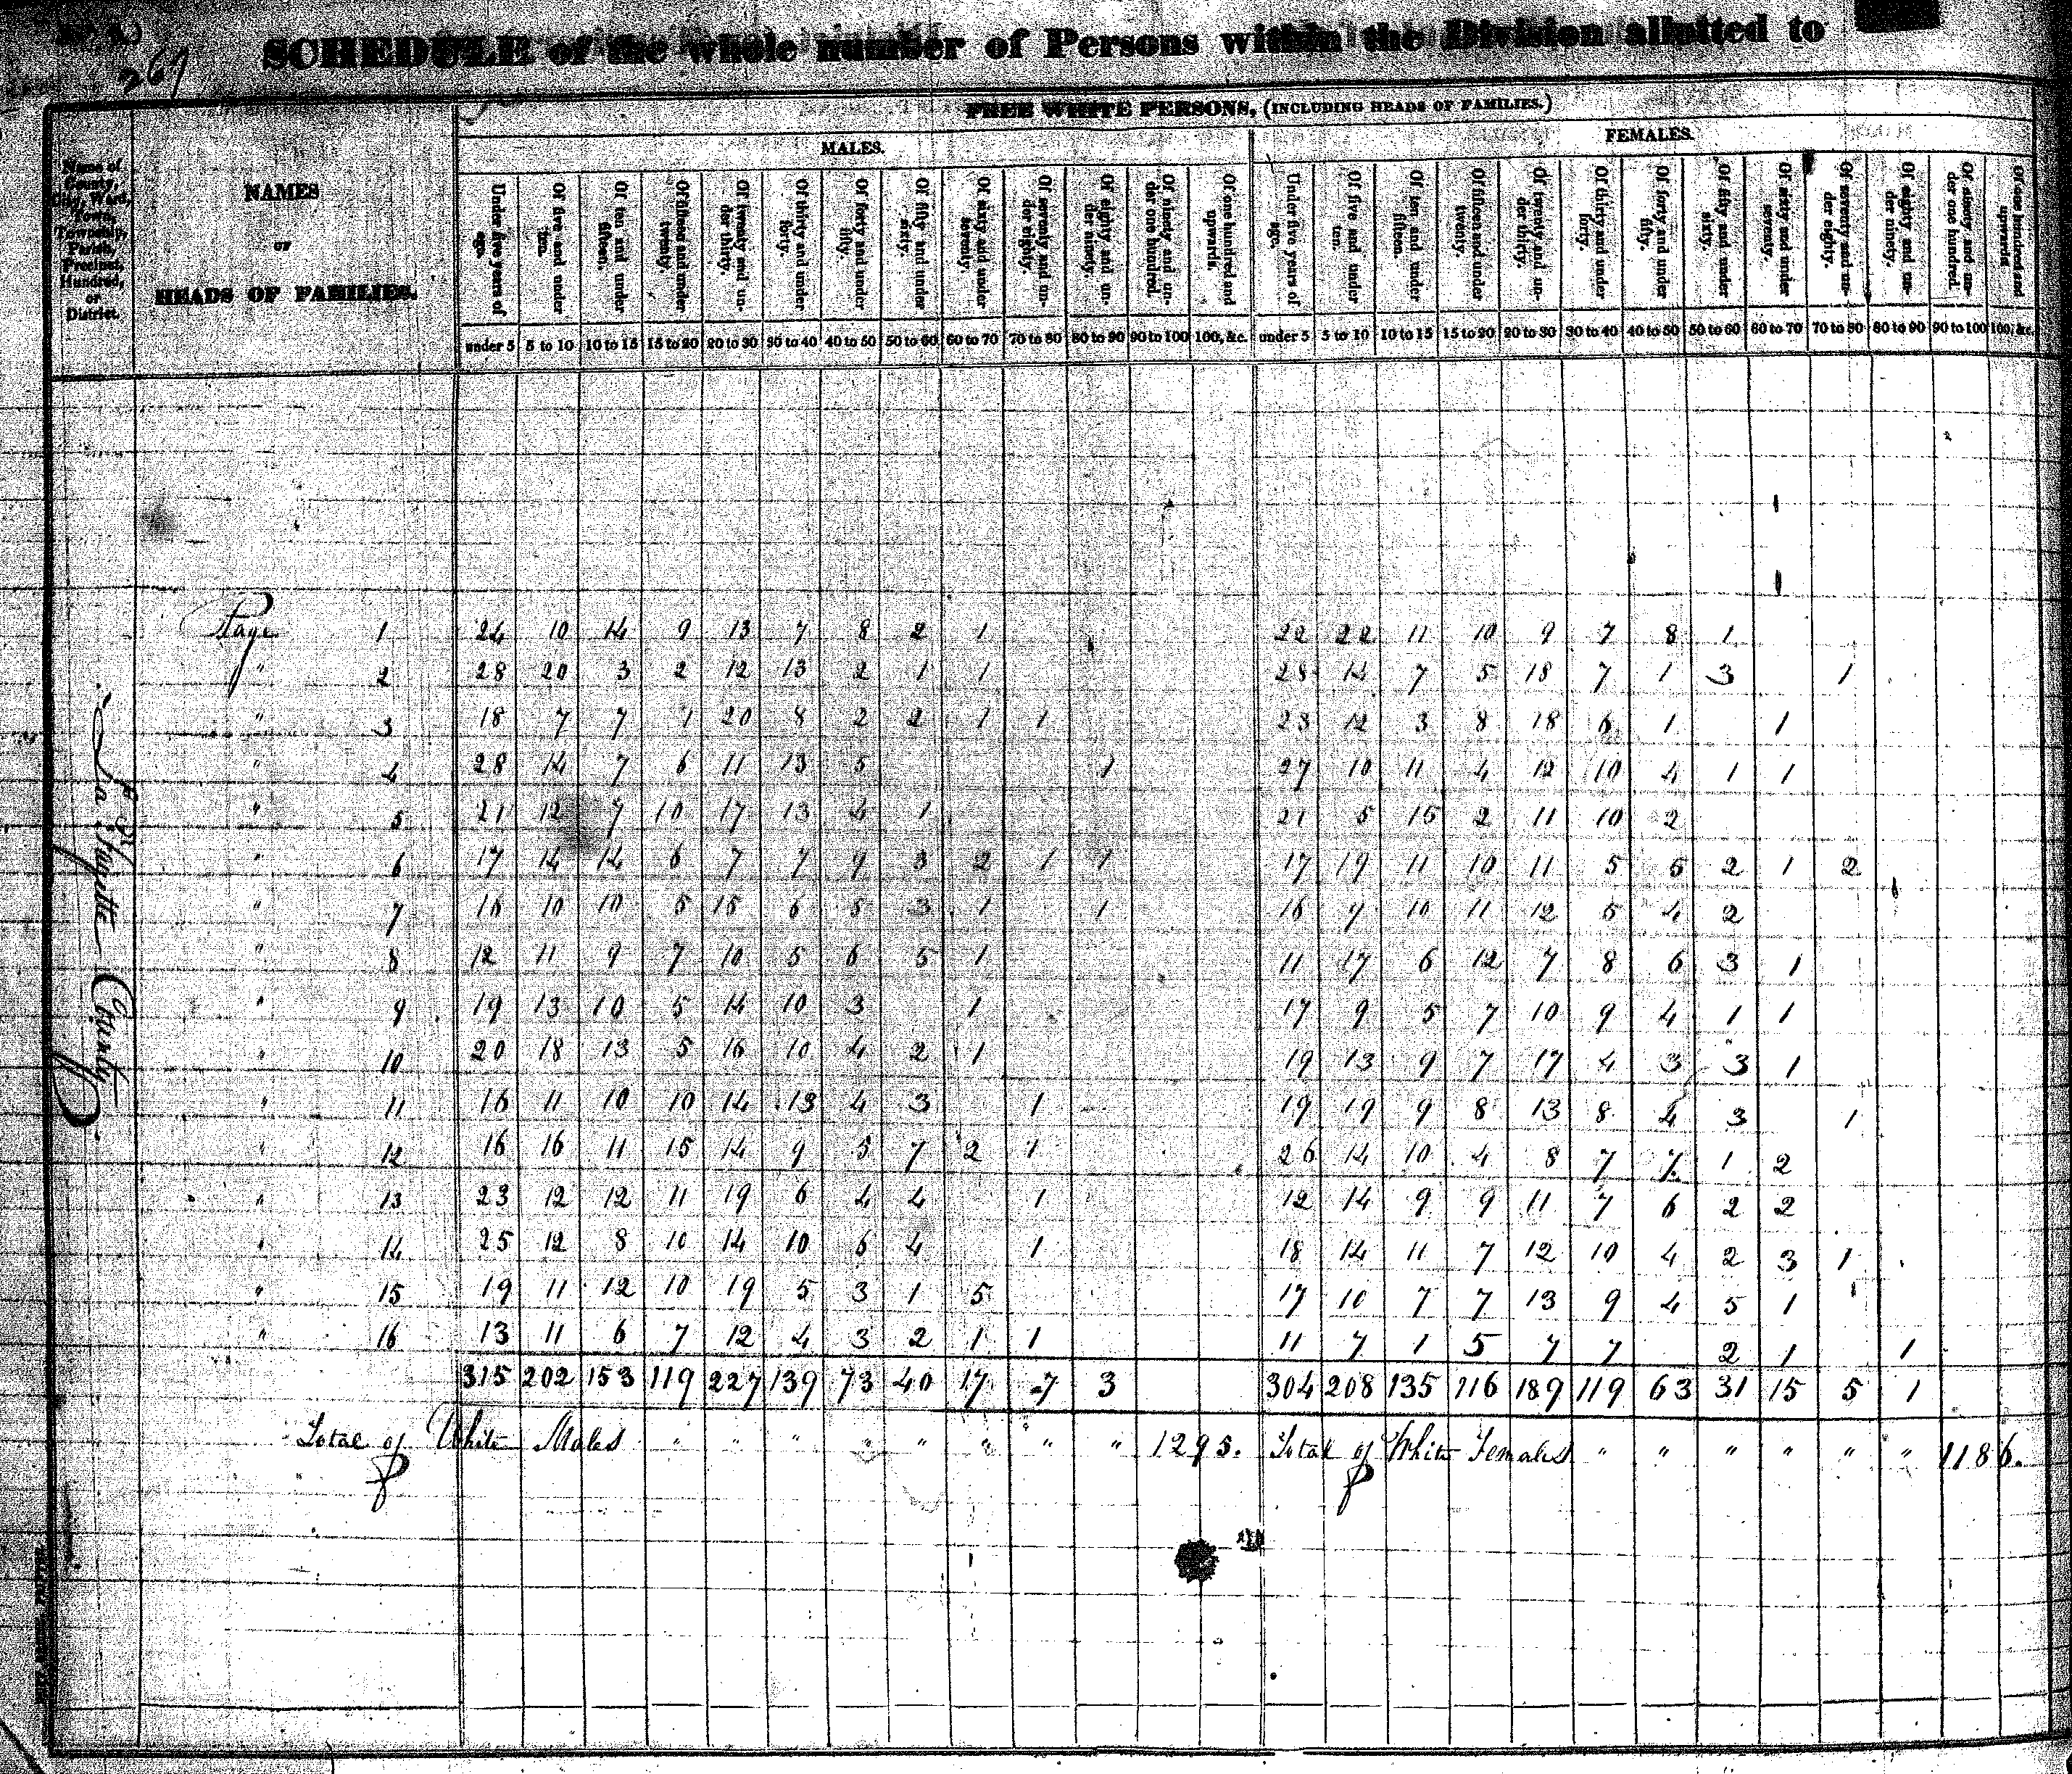 267
SCHEDULE of the whole number of Persons within the Division allotted to
FREE WHITE PERSONS, (INCLUDING HEADS OF FAMILIES.)
MALES. FEMALES.
Name of County, City, Ward, Town, Township, Parish, Precinct, Hundred, or District.
NAMES
OF
HEADS OF FAMILIES.
Under five years of age. Of five and under ten. Of ten and under fifteen. Of fifteen and under twenty. Of twenty and under thirty. Of thirty and under forty. Of forty and under fifty. Of fifty and under sixty. Of sixty and under seventy. Of seventy and under eighty. Of eighty and under ninety. Of ninety and under one hundred. Of one hundred and upwards. Under five years of age. Of five and under ten. Of ten and under fifteen. Of fifteen and under twenty. Of twenty and under thirty. Of thirty and under forty. Of forty and under fifty. Of fifty and under sixty. Of sixty and under seventy. Of seventy and under eighty. Of eighty and under ninety. Of ninety and under one hundred. Of one hundred and upwards
under 5 5 to 10 10 to 15 15 to 20 20 to 30 30 to 40 40 to 50 50 to 60 60 to 70 70 to 80 80 to 90 90 to 100 100, &c. under 5 5 to 10 10 to 15 15 to 20 20 to 30 30 to 40 40 to 50 50 to 60 60 to 70 70 to 80 80 to 90 90 to 100 100, &c.
La Fayette County
Page 1 24 10 14 9 13 7 8 2 1 22 22 11 10 9 7 8 1
" 2 28 20 3 2 12 13 2 1 1 28 14 7 5 18 7 1 3 1
" 3 18 7 7 1 20 8 2 2 1 1 23 12 3 8 18 6 1 1
" 4 28 14 7 6 11 13 5 1 27 10 11 4 12 10 4 1 1
" 5 21 12 9 10 17 13 4 1 21 5 15 2 11 10 2
" 6 17 14 14 6 7 7 9 3 2 1 1 17 19 11 10 11 5 5 2 1 2
" 7 16 10 10 5 15 6 5 3 1 1 16 9 10 11 12 5 4 2
" 8 12 11 9 7 10 5 6 5 1 11 17 6 12 7 8 6 3 1
" 9 19 13 10 5 14 10 3 1 17 9 5 7 10 9 4 1 1
" 10 20 18 13 5 16 10 4 2 1 19 13 9 7 17 4 3 3 1
" 11 16 11 10 10 14 13 4 3 1 19 19 9 8 13 8 4 3 1
" 12 16 16 11 15 14 9 5 7 2 1 26 14 10 4 8 7 7 1 2
" 13 23 12 12 11 19 6 4 4 1 12 14 9 9 11 7 6 2 2
" 14 25 12 8 10 14 10 6 4 1 18 14 11 7 12 10 4 2 3 1
" 15 19 11 12 10 19 5 3 1 5 17 10 7 7 13 9 4 5 1
" 16 13 11 6 7 12 4 3 2 1 1 11 7 1 5 7 7 2 1 1
315 202 153 119 227 139 73 40 17 7 3 304 208 135 116 189 119 63 31 15 5 1
Total of White Males " " " " " " " " 1295. Total of White Females " " " " " " 1186.